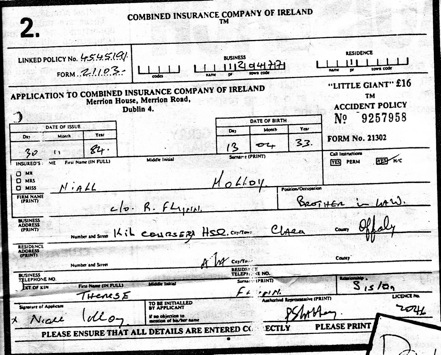 2.
COMBINED INSURANCE COMPANY OF IRELAND
TM
LINKED POLICY No. 4545191
FORM 21103
BUSINESS
RESIDENCE
codes
name pr town code
name pr town code
APPLICATION TO COMBINED INSURANCE COMPANY OF IRELAND
Merrion House, Merrion Road,
Dublin 4.
"LITTLE GIANT" £16
TM
ACCIDENT POLICY
No 9257958
FORM No. 21302
DATE OF ISSUE
Day Month Year
30 11 84
DATE OF BIRTH
Day Month Year
13 04 33
Call Instructions
YES PERM YES N/C
INSURED'S First Name (IN FULL) Middle Initial Surname (PRINT)
MR
MRS
MISS
NIALL MOLLOY
FIRM NAME
(PRINT)
c/o R. FLYNN.
Position/Occupation
BROTHER IN LAW.
BUSINESS
ADDRESS
(PRINT)
Kilcoursey HSE. Clara Offaly
Number and Street City/Town County
RESIDENCE
ADDRESS
(PRINT)
Number and Street City/Town County
BUSINESS
TELEPHONE NO.
RESIDENCE
TELEPHONE NO.
First Name (IN FULL) Middle Initial (PRINT) Relationship
THERESE
Signature of Applicant
x Niall
TO BE INITIALLED
BY APPLICANT
If no objection to
mention of his/her name
Authorised Representative (PRINT)
LICENCE No
2041
PLEASE ENSURE THAT ALL DETAILS ARE ENTERED CO ECTLY PLEASE PRINT